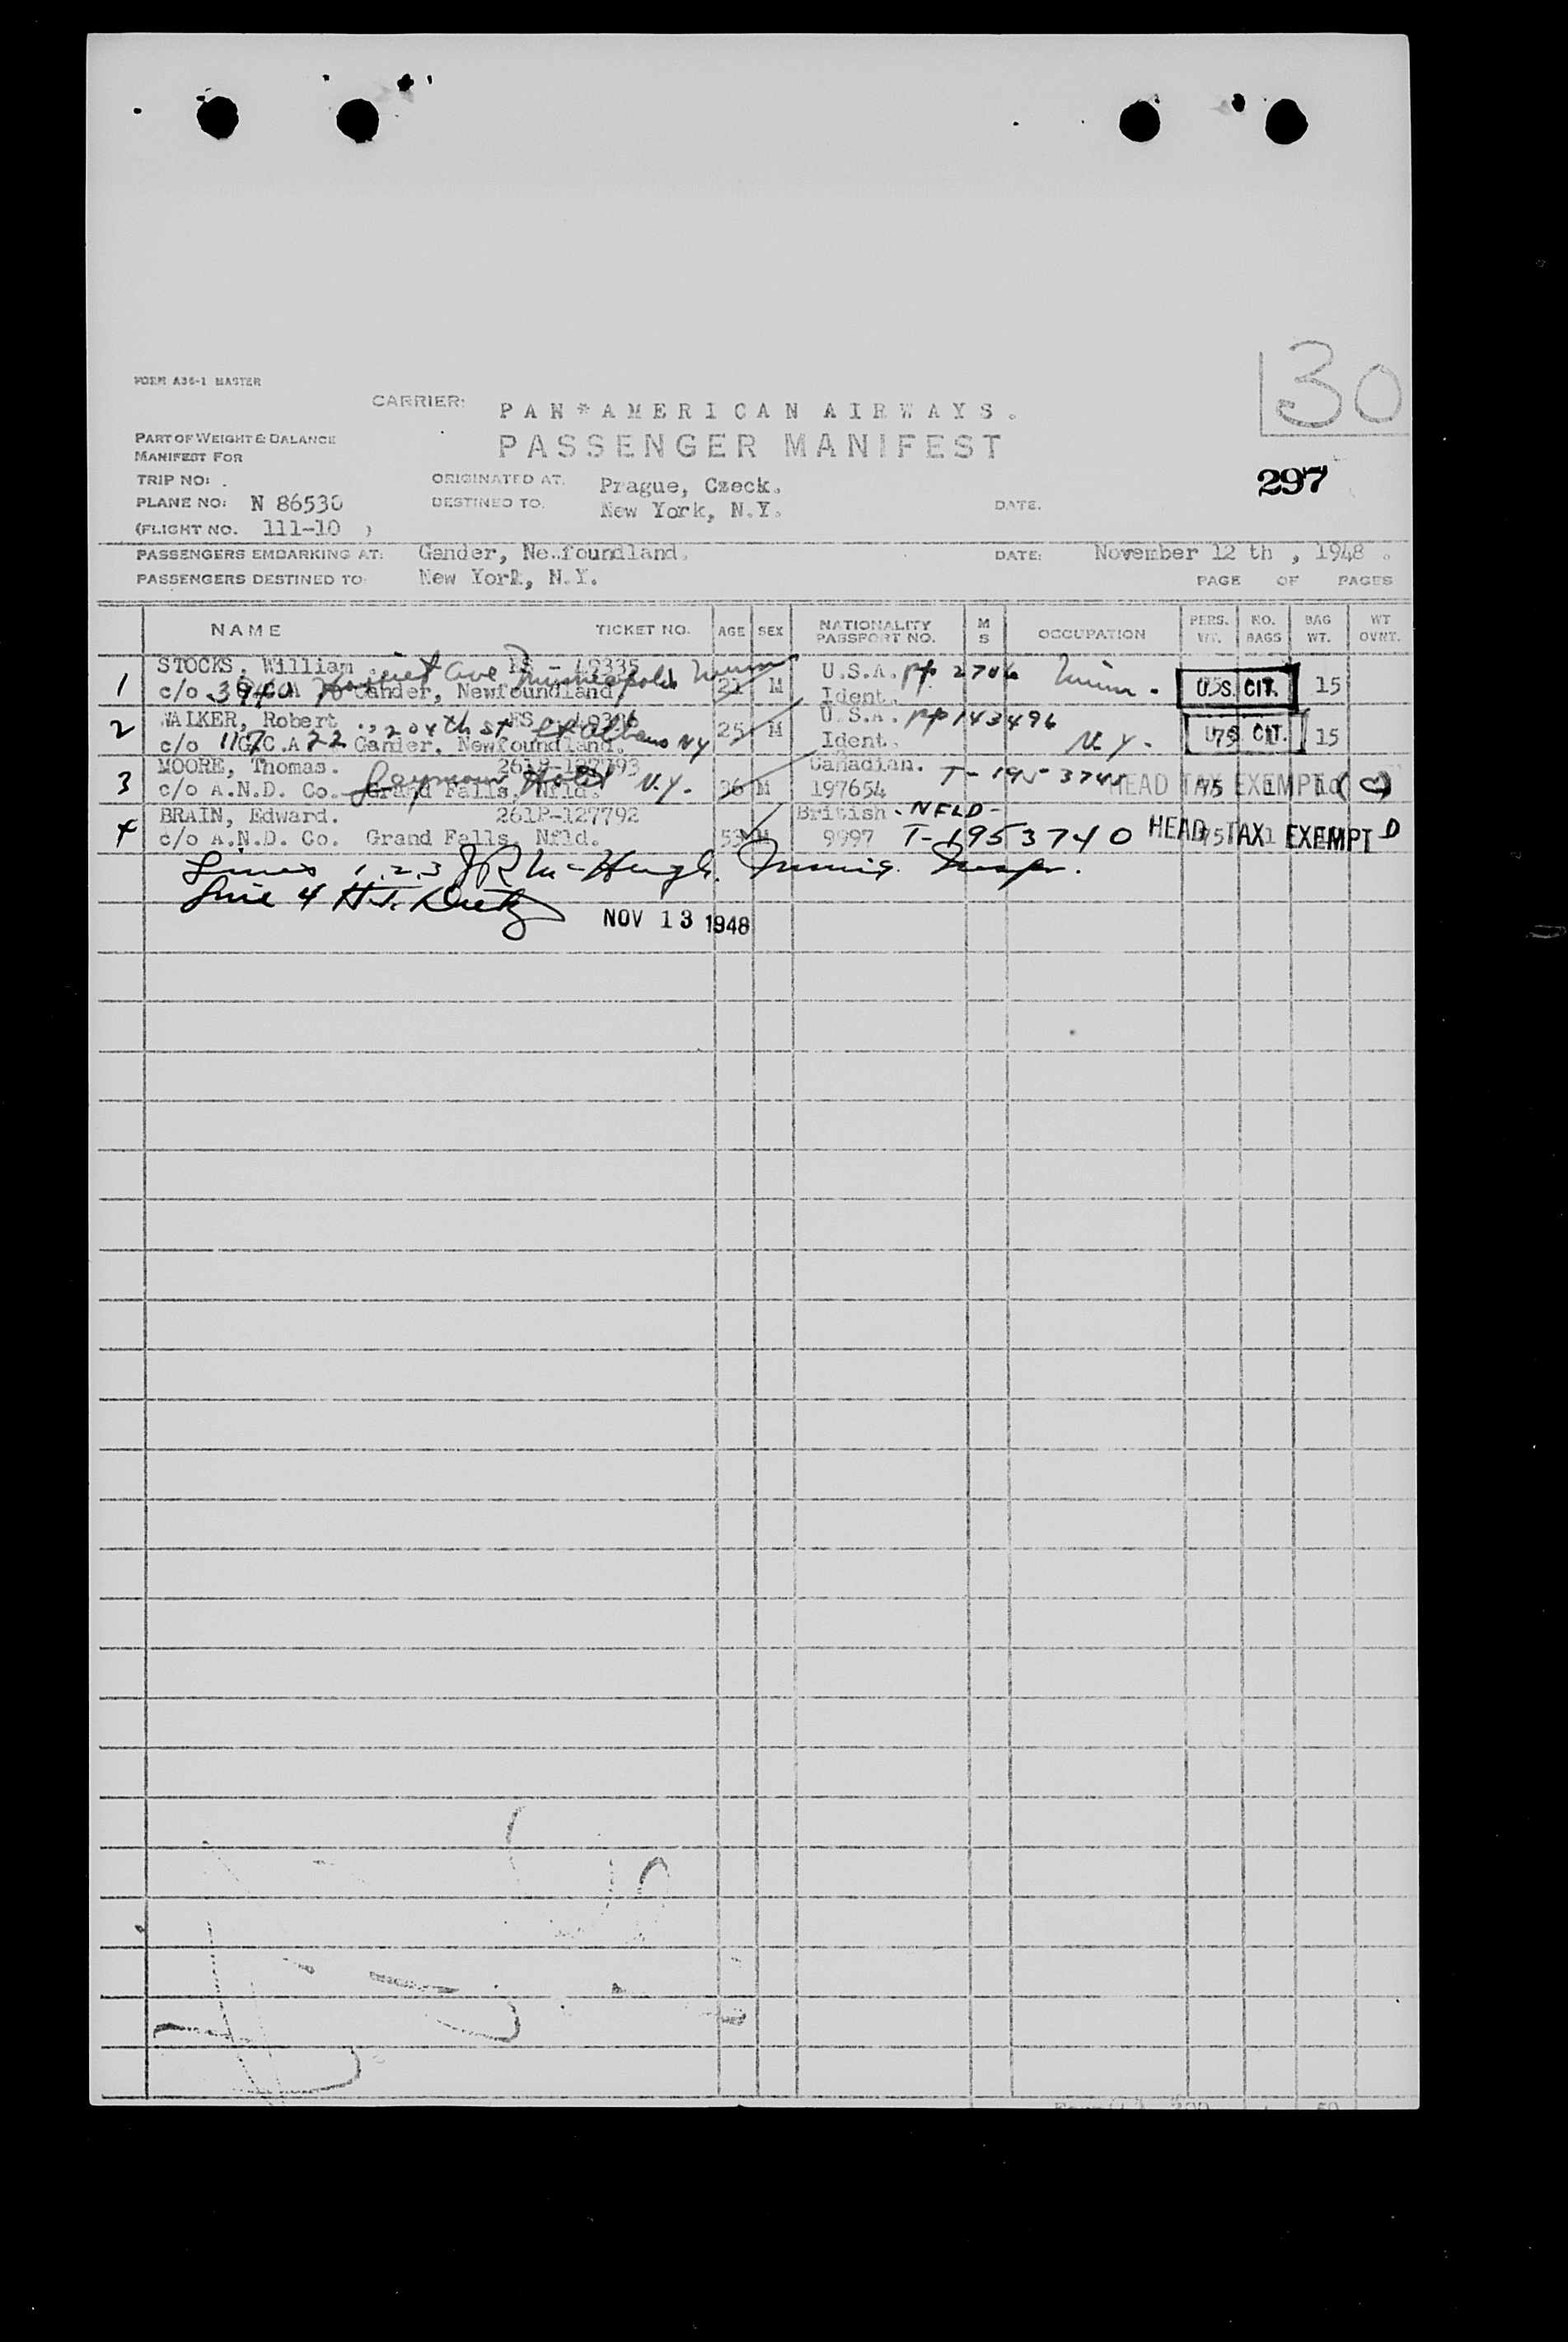 30
FORM A36-1 MASTER
CARRIER: PAN*AMERICAN AIRWAYS.
PART OF WEIGHT & BALANCE
PASSENGER MANIFEST
MANIFEST FOR
297
TRIP NO: . ORIGINATED AT: Prague, Czeck.
PLANE NO: N 86530 DESTINED TO: New York, N.Y. DATE:
(FLIGHT NO. 111-10 )
PASSENGERS EMBARKING AT: Gander, Newfoundland. DATE: November 12 th , 1948 .
PASSENGERS DESTINED TO: New York, N.Y. PAGE OF PAGES
NAME TICKET NO. AGE SEX NATIONALITY PASSPORT NO. M S OCCUPATION PERS. WT. NO. BAGS BAG WT. WT OVNT.
STOCKS, William . U.S.A. pp 2706 Minn.
1 c/o Gander, Newfoundland 21 M Ident. U.S. CIT. 15
Ave Minneapolis Minn
WALKER, Robert U.S.A. pp 143496
2 c/o Gander, Newfoundland. 25 M Ident. N.Y. U.S. CIT. 15
204th St Albans NY
MOORE, Thomas. 261P-127793 Canadian. T-195
3 c/o A.N.D. Co. Grand Falls, Nfld. 36 M 197654 HEAD TAX EXEMPT
Seymour Hotel N.Y.
BRAIN, Edward. 261P-127792 British - NFLD -
4 c/o A.N.D. Co. Grand Falls, Nfld. 53 M 9997 T-1953740 HEAD TAX EXEMPT D
Lines 1,2,3 Immig. Insp.
Line 4 H.J.
NOV 13 1948